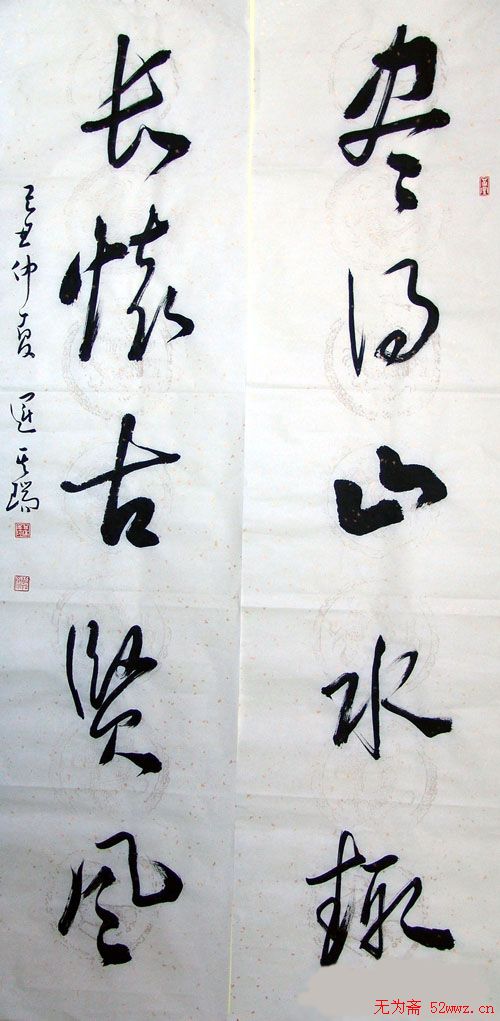 尽得山水趣
长怀古贤风
己丑仲夏
瑞
无为斋 52wwz.cn